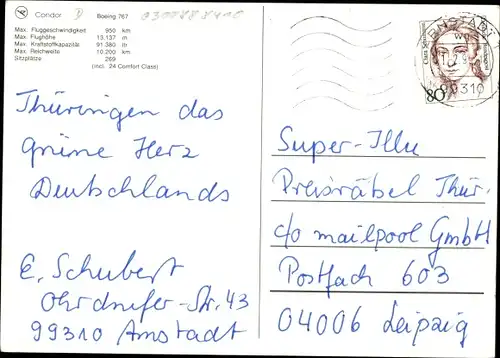 Condor Boeing 767
Max. Fluggeschwindigkeit 850 km
Max. Flughöhe 13.137 m
Max. Kraftstoffkapazität 91.380 lit
Max. Reichweite 10.200 km
Sitzplätze 269
(incl. 24 Comfort Class)
Thüringen das
Grüne Herz
Deutschlands
E. Schubert
Ohrdrufer-Str. 43
99310 Arnstadt
80
Clara Schumann
99310
Super-Illu
Preisrätsel Thür.
c/o mailpool GmbH
Postfach 603
04006 Leipzig